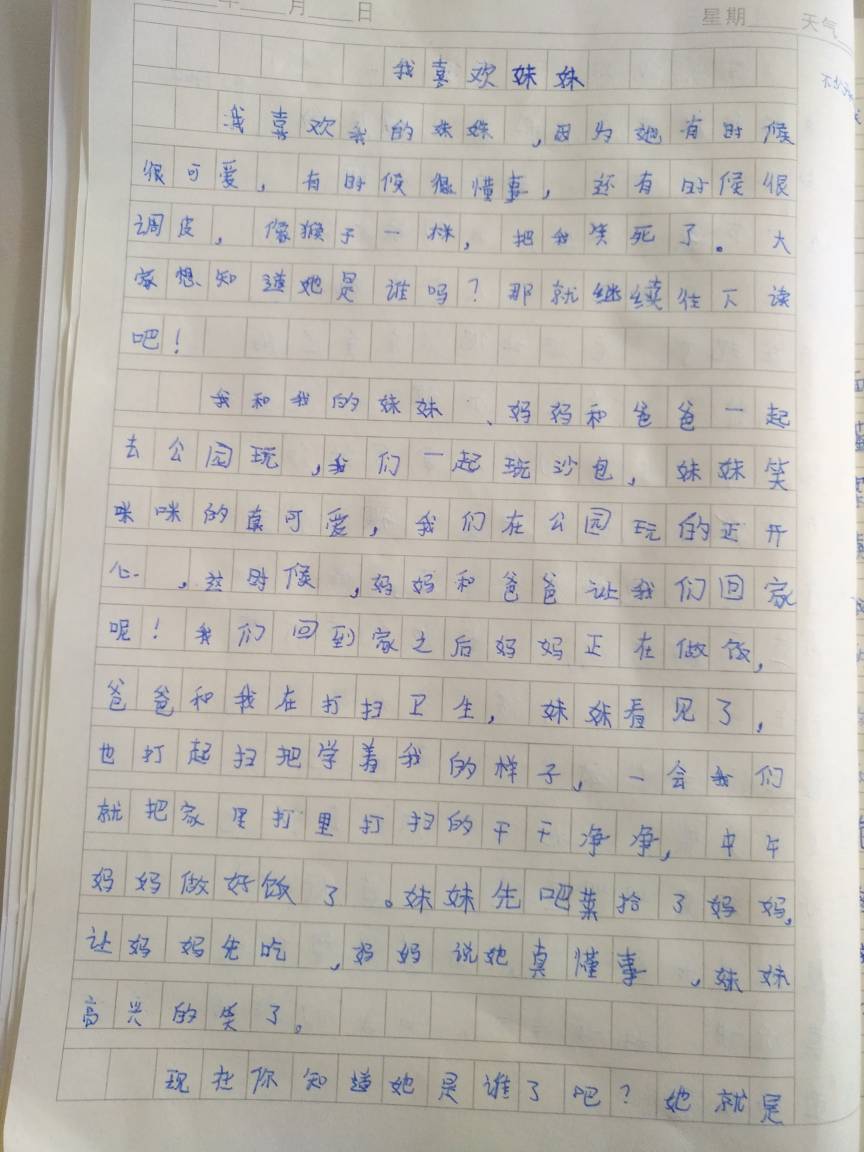 年 月 日 星期 天气
我喜欢妹妹
我喜欢我的妹妹,因为她有时候
很可爱,有时候很懂事,还有时候很
调皮,像猴子一样,把我笑死了。大
家想知道她是谁吗?那就继续往下读
吧!
我和我的妹妹、妈妈和爸爸一起
去公园玩,我们一起玩沙包,妹妹笑
咪咪的真可爱,我们在公园玩的正开
心,这时候,妈妈和爸爸让我们回家
呢!我们回到家之后妈妈正在做饭,
爸爸和我在打扫卫生,妹妹看见了,
也打起扫把学着我的样子,一会我们
就把家里打里打扫的干干净净,中午
妈妈做好饭了。妹妹先吧菜给了妈妈,
让妈妈先吃,妈妈说她真懂事,妹妹
高兴的笑了。
现在你知道她是谁了吧?她就是